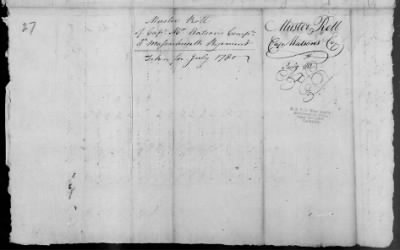 27
Muster Roll
of Capt. Watsons Compy
3d Massachusetts Regiment
Taken for July 1780
Muster Roll
Capt Watsons Cy
July 80